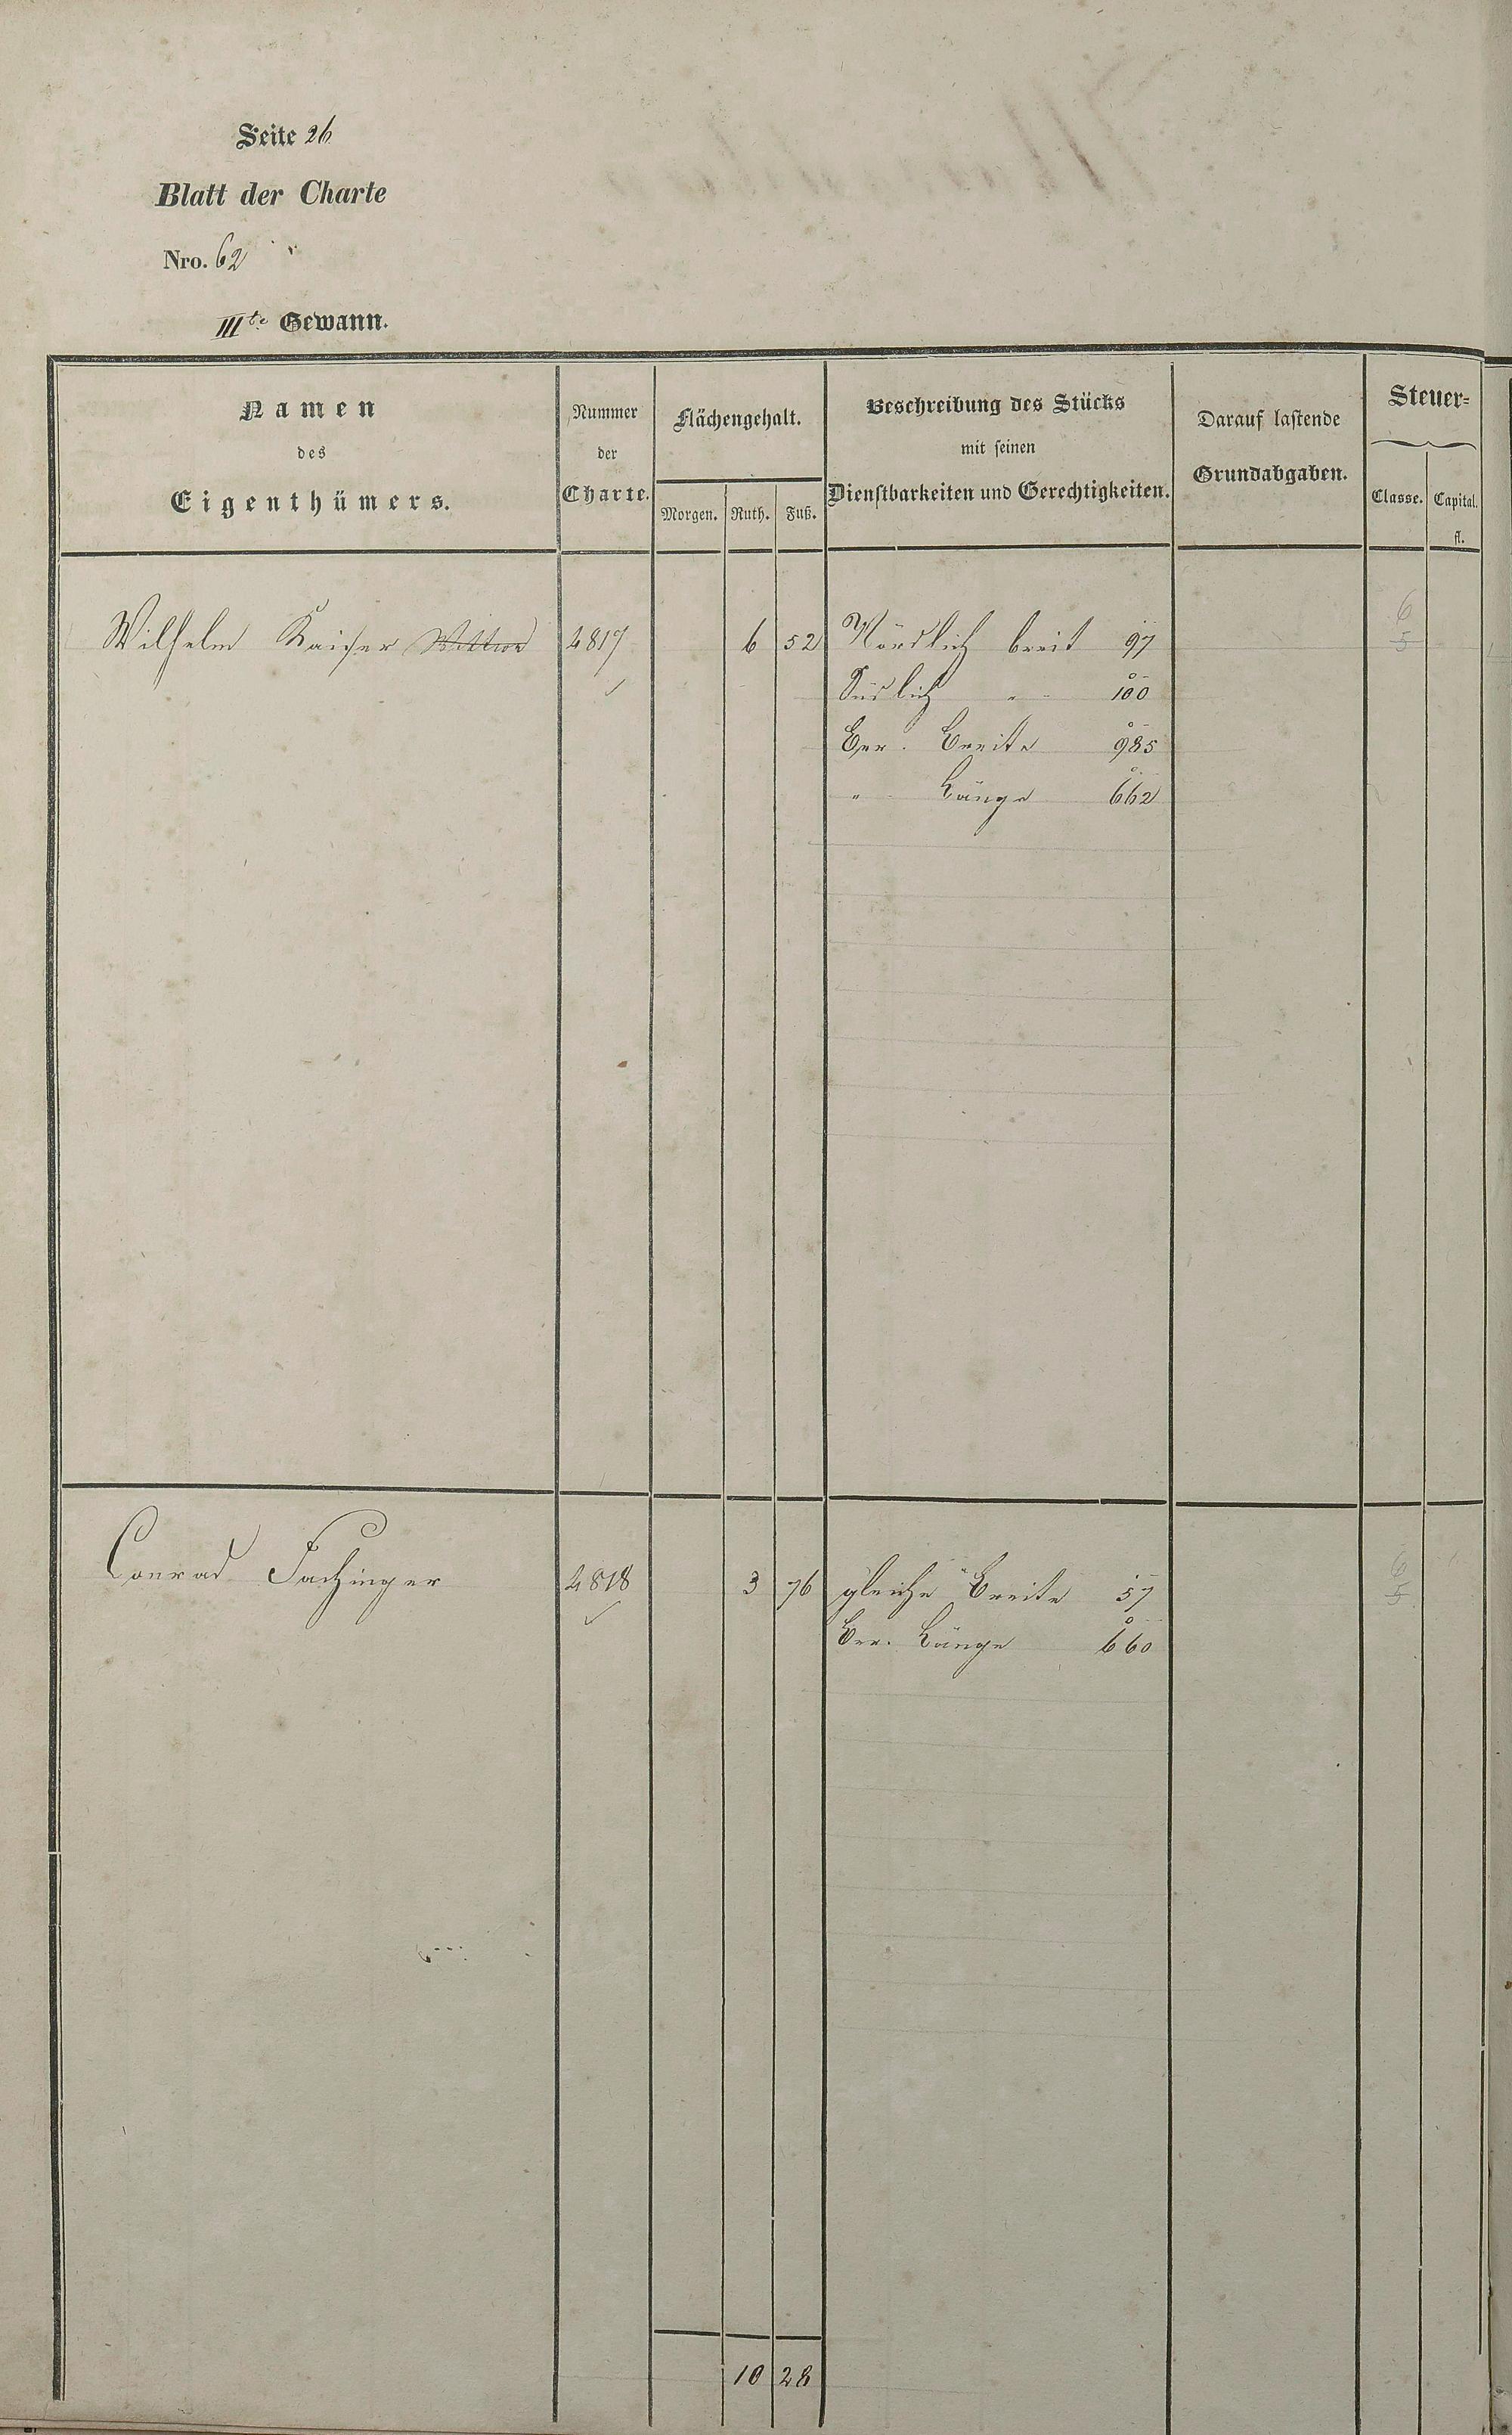 Seite 26
Blatt der Charte
Nro. 62
IIIte Gewann.
Namen
des
Eigenthümers.
Nummer
der
Charte.
Flächengehalt.
Morgen. Ruth. Fuß.
Beschreibung des Stücks
mit seinen
Dienstbarkeiten und Gerechtigkeiten.
Darauf lastende
Grundabgaben.
Steuer=
Classe. Capital.
fl.
Wilhelm Kaiser Wittwe 4817 6 52 Nördlich breit 97 6
Südlich " 100 5
Ber. Breite 985
" Länge 662
Conrad Fachinger 4818 3 76 gleiche Breite 57 6
Ber. Länge 660 5
10 28